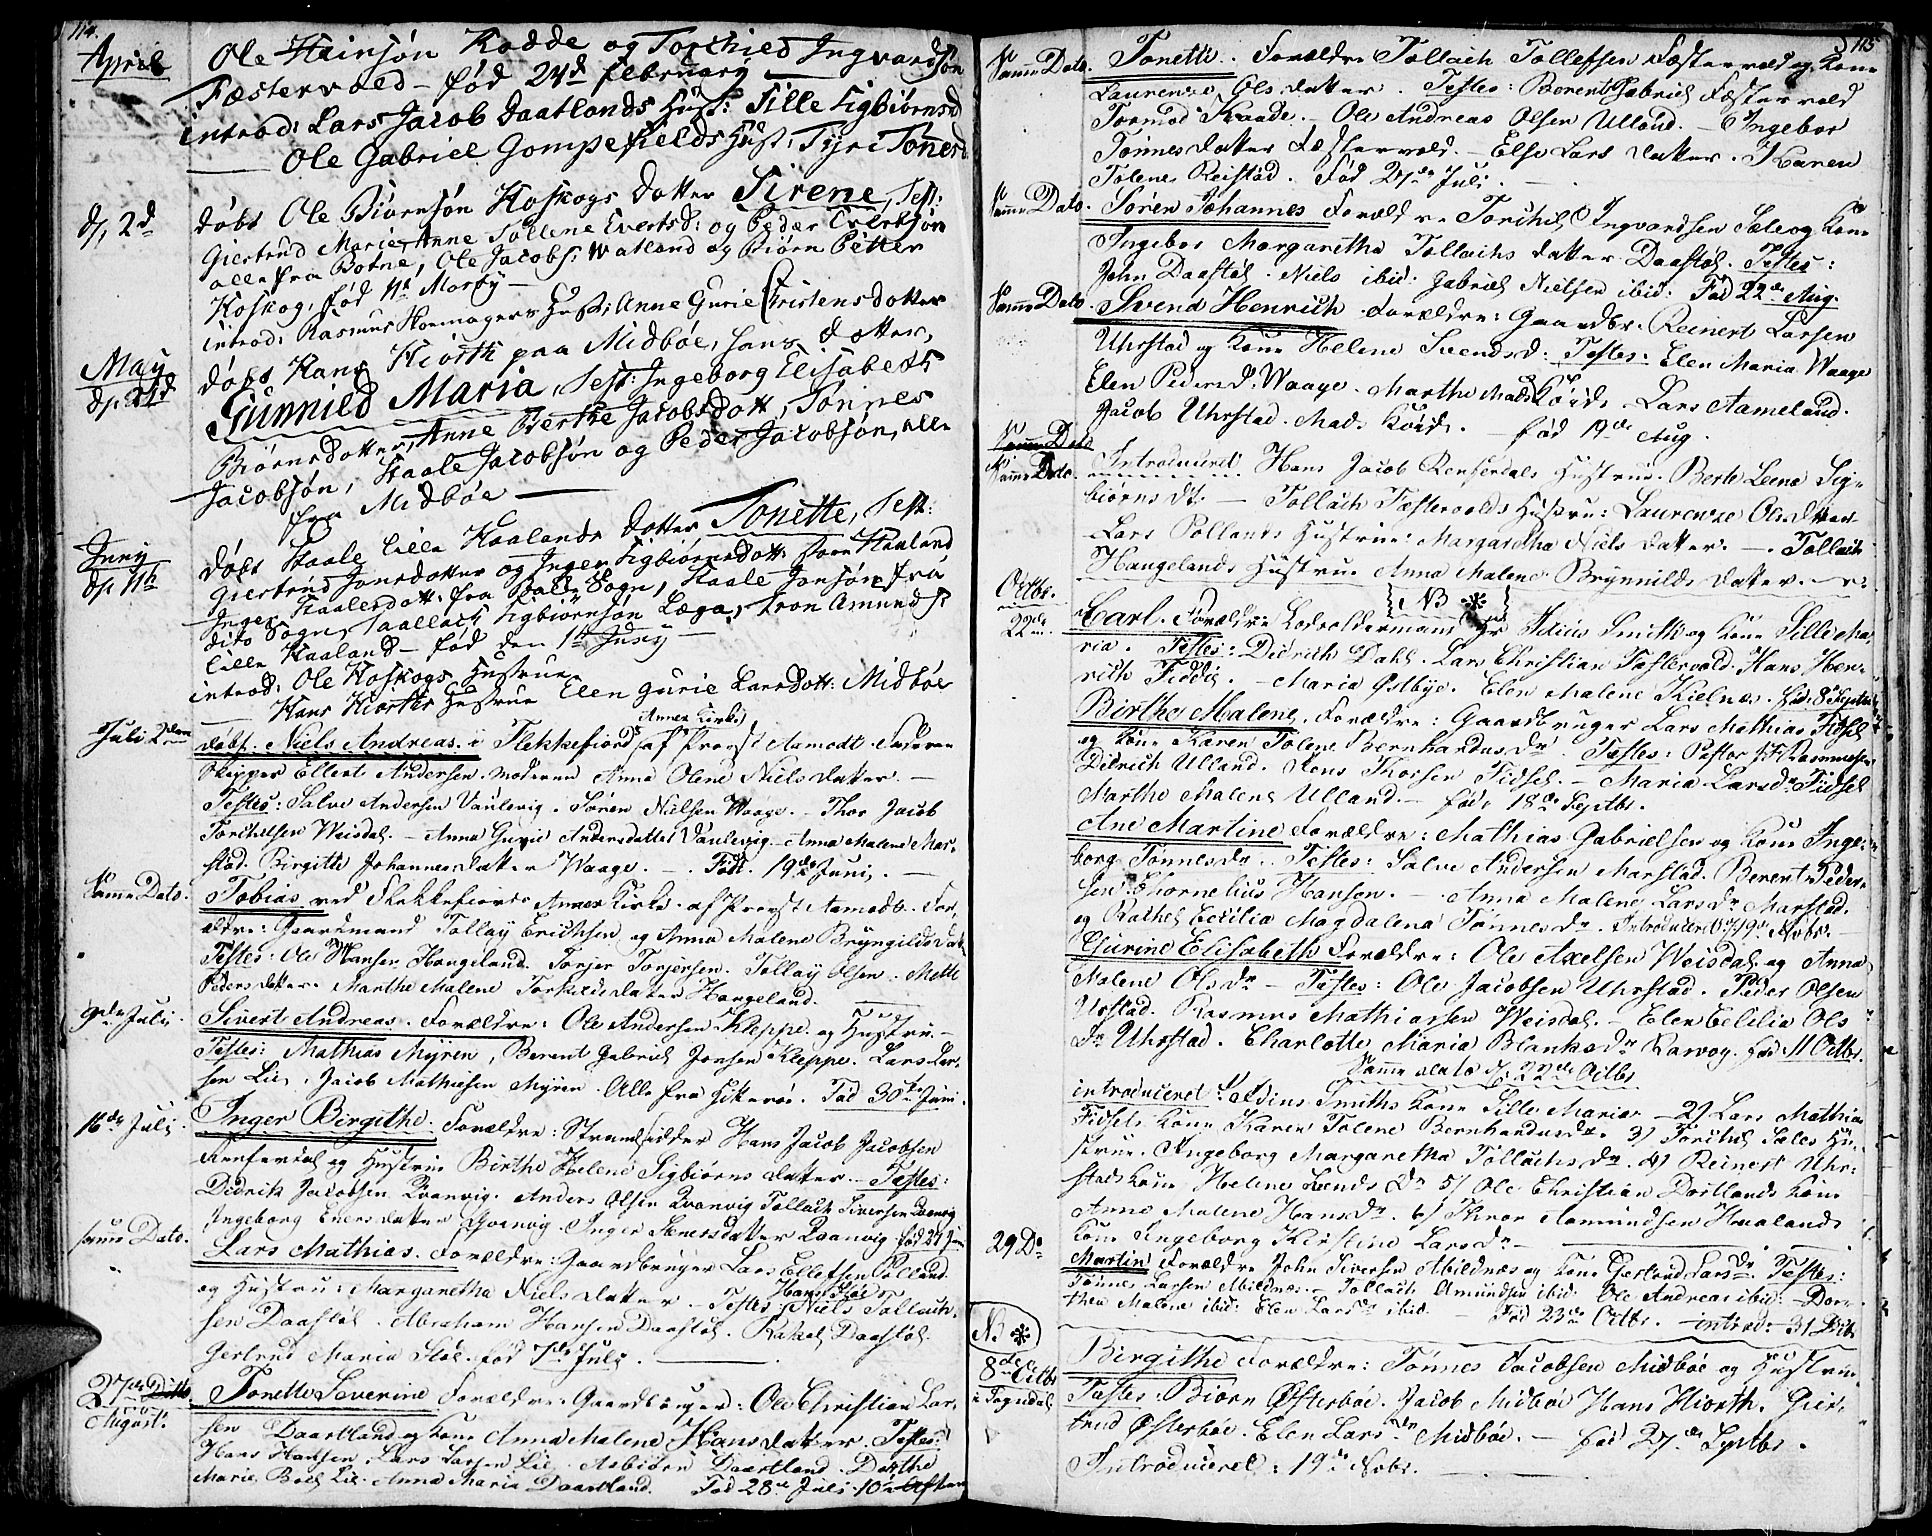 114.
April
Ole Heinsøn Rodde og Torchied Ingvardsøn
Fæstervold – fød 24d february
introd: Lars Jacob Daatlands Hust: Sille Sigbiørnsd
Ole Gabriel Gompefields Hust: Tyri Tønesd
d/ 2d
døbt Ole Biørnsøn Koskogs dotter Sirene, Test:
Giertrud Marie, Anne Tollene Evertsd: og Peder Evertsøn
alle fra Botne, Ole Jacobs: Watland og Biørn Petter
Koskog, fød 11t Marty –
introd: Rasmus Hormagers Hust: Anne Gurie Christensdotter
May
d/ 21d
døbt Hans Hiorth paa Midbøe, hans dotter,
Gunnild Maria, Test: Ingeborg Elisabeth
Biørnsdotter, Anne Berthe Jacobsdott, Tønnes
Jacobsøn, Staale Jacobsøn og Peder Jacobsøn, alle
fra Midbøe
Juny
d/ 11t
døbt Staale lille Haalands dotter Tonette, Test:
Giertrud Jonsdotter og Inger Sigbiørnsdott: Haaland
Inger Staalesdott: fra Balle Sogn, Staale Jonsøn fra
dito Sogn, Taallach Sigbiørnsøn Lega, Tron Amunds:
lille Haaland – fød den 1t Juny –
introd: Ole Koskogs Hustrue
Hans Hiorths Hustrue Elen Gurie Larsdott: Midbøe
Juli 2den
døbt. Niels Andreas. i Flekkefiords Annex Kirke af Provst Aamodt Faderen
Skipper Ellert Andersen. moderen Anna Olene Niels datter. –
Testes: Salve Andersen Vaulevig. Søren Nielsen Waage. – Thor Jacob
Torchelsen Weisdal. – Anna Gurie Andersdatter Vaulevig. Anna Malene Mar-
stad. Birgitte Johannesdatter Waage. – Fød. 19de Juni. –
Samme Dato.
Tobias ved Flekkefiords Annex Kirke. af Provst Aamodt. For,
ældre: Gaardmand Tollay Erichsen og Anna Malene Bryngilds dat
Testes: Ole Hansen Hangeland. Torjer Torjersen. Tollay Olsen. Mette
Peders datter. Marthe Malene Torkildsdatter Hangeland.
9de Juli.
Sivert Andreas. Forældre: Ole Andersen Kleppe. og Hustru. –
Testes: Mathias Myren, Berent Gabriel Jensen Kleppe. Lars Lar-
sen Lie, Jacob Mathiesen Myren. Alle fra Hitterøe. Fød 30te Juni.
16de Juli
Inger Birgithe. Forældre: Strandsidder Hans Jacob Jacobsen
Rensersdal og Hustrue Birthe Helene Sigbiørns datter. Testes:
Didrik Jacobsen Qvanvig. Anders Olsen Qvanvig Tollach Siversen Qvanvig
Ingeborg Enersdatter Qvanvig. Inger Jenesdatter Qvanvig. fød 27 Jun
samme Dato.
Lars Mathias. Forældre: Gaardbruger Lars Ellefsen Polland.
og Hustru: Margaretha Niels datter – Testes: Niels Tollach-
sen Daastøl. Abraham Hansen Daastøl. Rakel Daastøl.
Gertrud Maria Støl. fød 7de Juli.
27de
August.
Tonette Severine Forældre: Gaardbruger: Ole Christian Lar-
sen Daartland og Kone Anna Malene Hans datter. Testes:
Hans Hansen. Lars Larsen Lie. Daartland. Dorthe
Marie Lie. Anna Maria Daartland. Fød 28de Juli. 10
115
Samme Dato.
Tonette. Forældre Tollach Tollefsen Fæstervold og Kone
Laurenze Ols datter. Testes: Berent Gabriel Fæstervold
Tormod Raade. – Ole Andreas Olsen Ulland. – Ingebor
Tønnesdatter Fæstervold. – Else Lars datter. Karen
Tolene Reistad. Fød 27de Juli.
Samme Dato.
Søren Johannes Forældre Torchil Ingvardsen Sæle og Kone
Ingebor Margaretha Tollachs datter Daastøl. Testes:
John Daastøl. Niels ibid: Gabriel Nielsen ibid: Fød 22de Aug.
Samme Dato.
Svend Henrich Forældre: Gaardbr. Reinert Larsen
Uhrstad og Kone Helene Svends d: Testes: Elen Maria Waage
Elen Peders d. Waage. Marthe Mads d. Lars Aameland.
Jacob Uhrstad. Mads – fød 19de Aug.
Samme Dato.
Introduceret Hans Jacob Rensersdals Hustrue. Berte Leene Sig-
biørns dt. – Tollach Fæstervolds Hustru: Laurenze Olsdatter
Lars Pollands Hustrue: Margaretha Niels datter. – Tollach
Hangelands Hustrue Anna Malene Brynnilds datter.
Octbr.
22de
NB *
Carl. Forældre Lodsoldermand Hr Smith og Kone Sille Ma-
ria. Testes: Didrich Dahl. Lars Christian Fæstervold. Hans Hen-
rich Fiddie. – Maria Østbye. Elen Malene Kielnæs. fød 8de Septbr
Birthe Malene. Forældre: Gaardbruger Lars Mathias Fidsel
og Kone Karen Tolene Bernhardus dr. Testes: Pastor Rasmussen
Didrich Ulland. Jens Thorsen Fidsel. – Maria Larsdr Fidsel
Marthe Malene Ulland. – fød 18de Septbr.
Ane Martine Forældre: Mathias Gabrielsen og Kone Inge-
borg Tønnes dr. Testes: Salve Andersen Marstad. Berent Peder-
sen. Cornelius Hansen. – Anna Malene Lars dr Marstad.
og Rachel Cecilia Magdalena Tønnes dr. Introduceret 19de Novbr.
Gurine Elisabeth Forældre: Ole Axelsen Weisdal og Anna
Malene Ols dr – Testes: Ole Jacobsen Uhrstad. Peder Olsen
Uhrstad. Rasmus Mathiassen Weisdal. – Elen Cecilia Ols
dr Uhrstad. Charlotte Maria Blanks dr Ravog. fød 11 Octbr.
Samme dato d/ 22de Octbr
introduceret Smiths Kone Sille Maria – 2/ Lars Mathias
Fidsels Kone Karen Tolene Bernhardus dr. 3/ Torchil Sæles Hu-
strue. Ingeborg Margaretha Tollachs dr. 4/ Reinert Uhr-
stads Kone Helene Svends dr 5/ Ole Christian Daatlands Kone
Anne Malene Hans dr. 6/ Thron Aamundsen Haalands
Kone Ingeborg Kirstine Lars dr. –
29 Do
Martin Forældre John Siversen Abildnæs og Kone Gertrud Lars dr. Testes:
Tønnes Larsen Abildnæs. Tollach Amundsen ibid: Ole Andreas ibid: Dor-
thea Malene ibid: Elen Lars dr ibid – Fød 23de Octbr. – introd: 31
NB *
8de Octbr
i Sogndal
Birgithe Forældre: Tønnes Jacobsen Midbøe og Hustrue
Testes: Biørn Østerbøe. Jacob Midbøe Hans Hiorth. Gier-
trud Østerbøe. Elen Lars dr Midbøe. – fød 27de Septbr.
Introduceret: 19de Novbr.